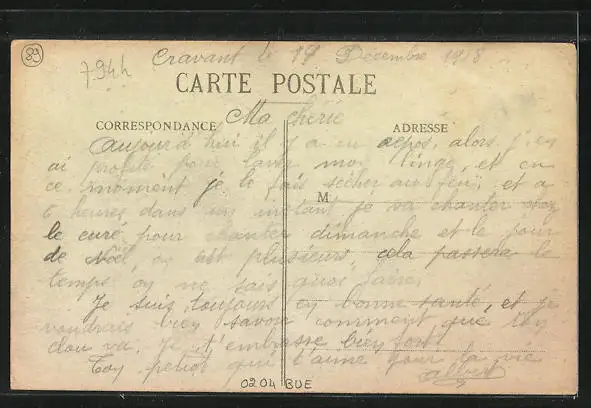 89
794h
Cravant le 19 Décembre 1918
CARTE POSTALE
Ma chérie
CORRESPONDANCE
ADRESSE
aujourd'hui il y a eu repos, alors j'en
ai profité pour laver mon linge, et en
ce moment je le fais sécher au feu, et a
M
6 heures dans un instant je va chanter chez
le curé pour chanter dimanche et le jour
de Noël, on est plusieurs cela passera le
temps on ne sais quoi faire.
Je suis toujours en bonne santé, et je
voudrais bien savoir comment que ton
clou va. Je t'embrasse bien fort
Ton petiot qui t'aime pour la vie
Albert
0204 BUE